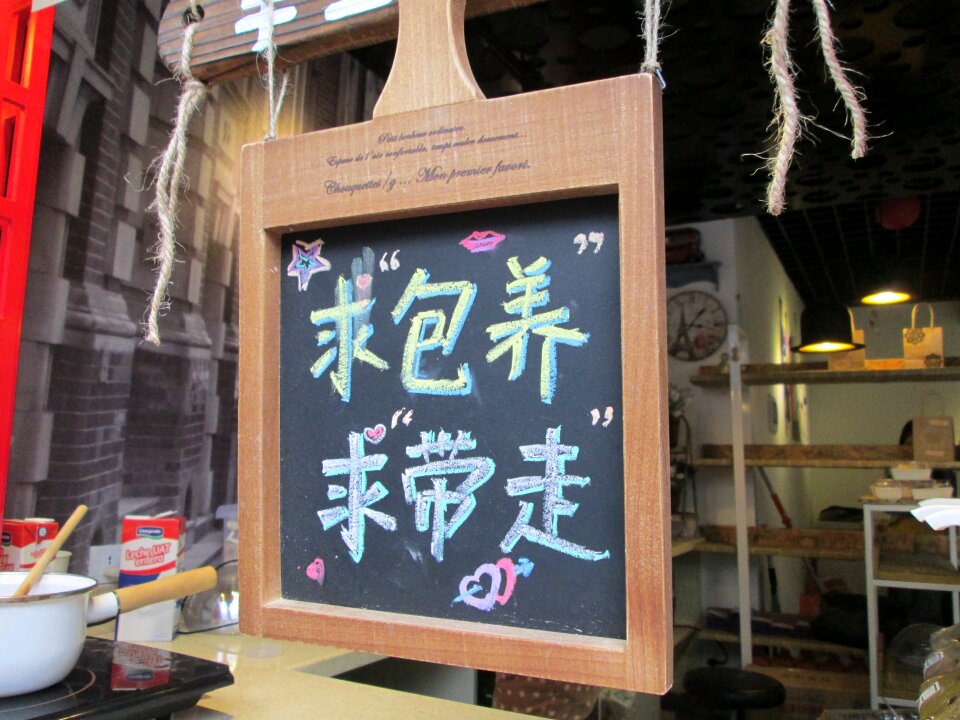 Petit bonheur ordinaire.
Espace de l'air confortable, temps couler doucement...
Chouquettes/g ... Mon premier favori.
求“包养”
求“带走”
Leche UAT
entera